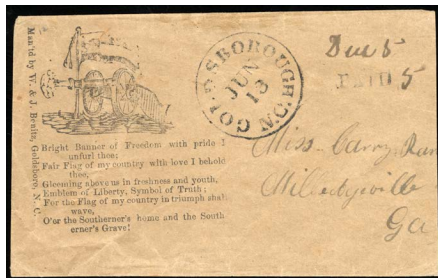 Man'fd by W. & J. Bonitz, Goldsboro, N. C.
Bright Banner of Freedom with pride I
unfurl thee;
Fair Flag of my country with love I behold
thee,
Gleeming above us in freshness and youth,
Emblem of Liberty, Symbol of Truth;
For the Flag of my country in triumph shal
wave,
O'or the Southerner's home and the South
erner's Grave!
GOLDSBOROUGH N.C.
JUN
13
Due 5
PAID 5
Miss Carry
Milledgeville
Ga